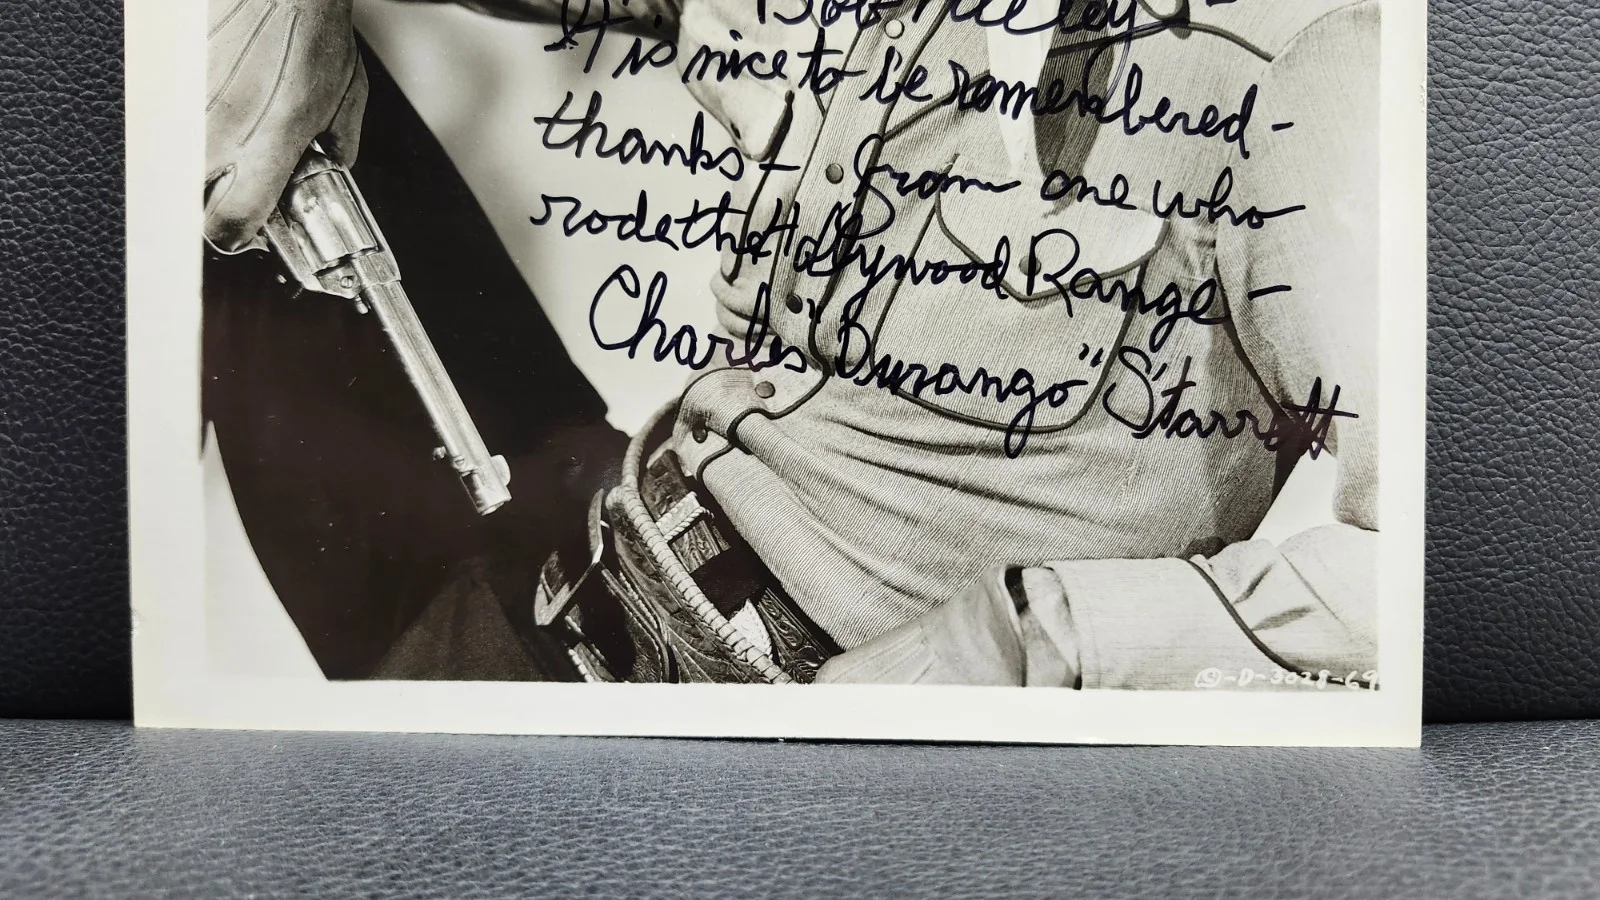 Bob
It is nice to be remembered -
thanks - from one who
rode the Hollywood Range -
Charles "Durango" Starrett
©-D-3028-69